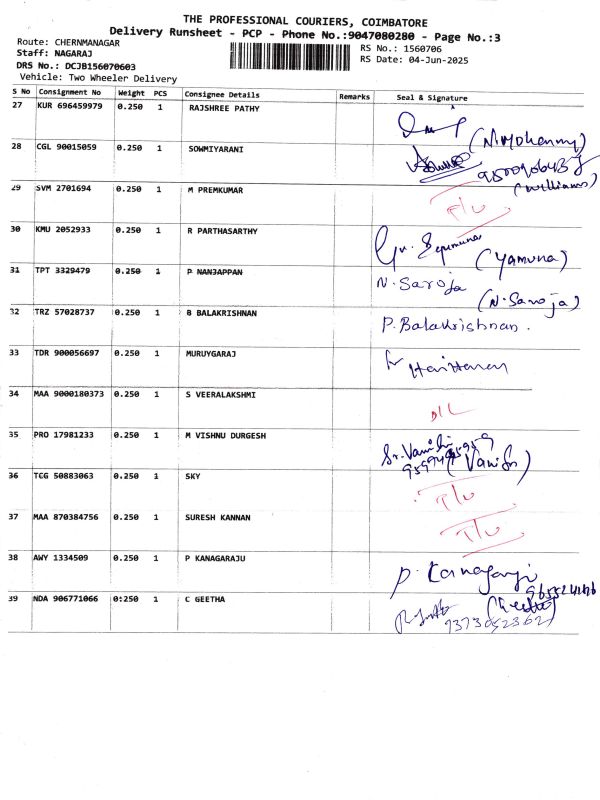 THE PROFESSIONAL COURIERS, COIMBATORE
Delivery Runsheet - PCP - Phone No.:9047080280 - Page No.:3
Route: CHERNMANAGAR
RS No.: 1560706
Staff: NAGARAJ
RS Date: 04-Jun-2025
DRS No.: DCJB156070603
Vehicle: Two Wheeler Delivery
S No Consignment No Weight PCS Consignee Details Remarks Seal & Signature
27 KUR 696459979 0.250 1 RAJSHREE PATHY
(N.Mohanmy)
28 CGL 90015059 0.250 1 SOWMIYARANI
(Williams)
29 SVM 2701694 0.250 1 M PREMKUMAR
30 KMU 2052933 0.250 1 R PARTHASARTHY
(Yamuna)
31 TPT 3329479 0.250 1 P NANJAPPAN N. Saroja
(N. Saroja)
32 TRZ 57028737 0.250 1 B BALAKRISHNAN P. Balakrishnan.
33 TDR 900056697 0.250 1 MURUYGARAJ Hariharan
34 MAA 9000180373 0.250 1 S VEERALAKSHMI
D/L
35 PRO 17981233 0.250 1 M VISHNU DURGESH
36 TCG 50883063 0.250 1 SKY
37 MAA 870384756 0.250 1 SURESH KANNAN
38 AWY 1334509 0.250 1 P KANAGARAJU
P. Kanagaraj
39 NDA 906771066 0:250 1 C GEETHA (Geetha)